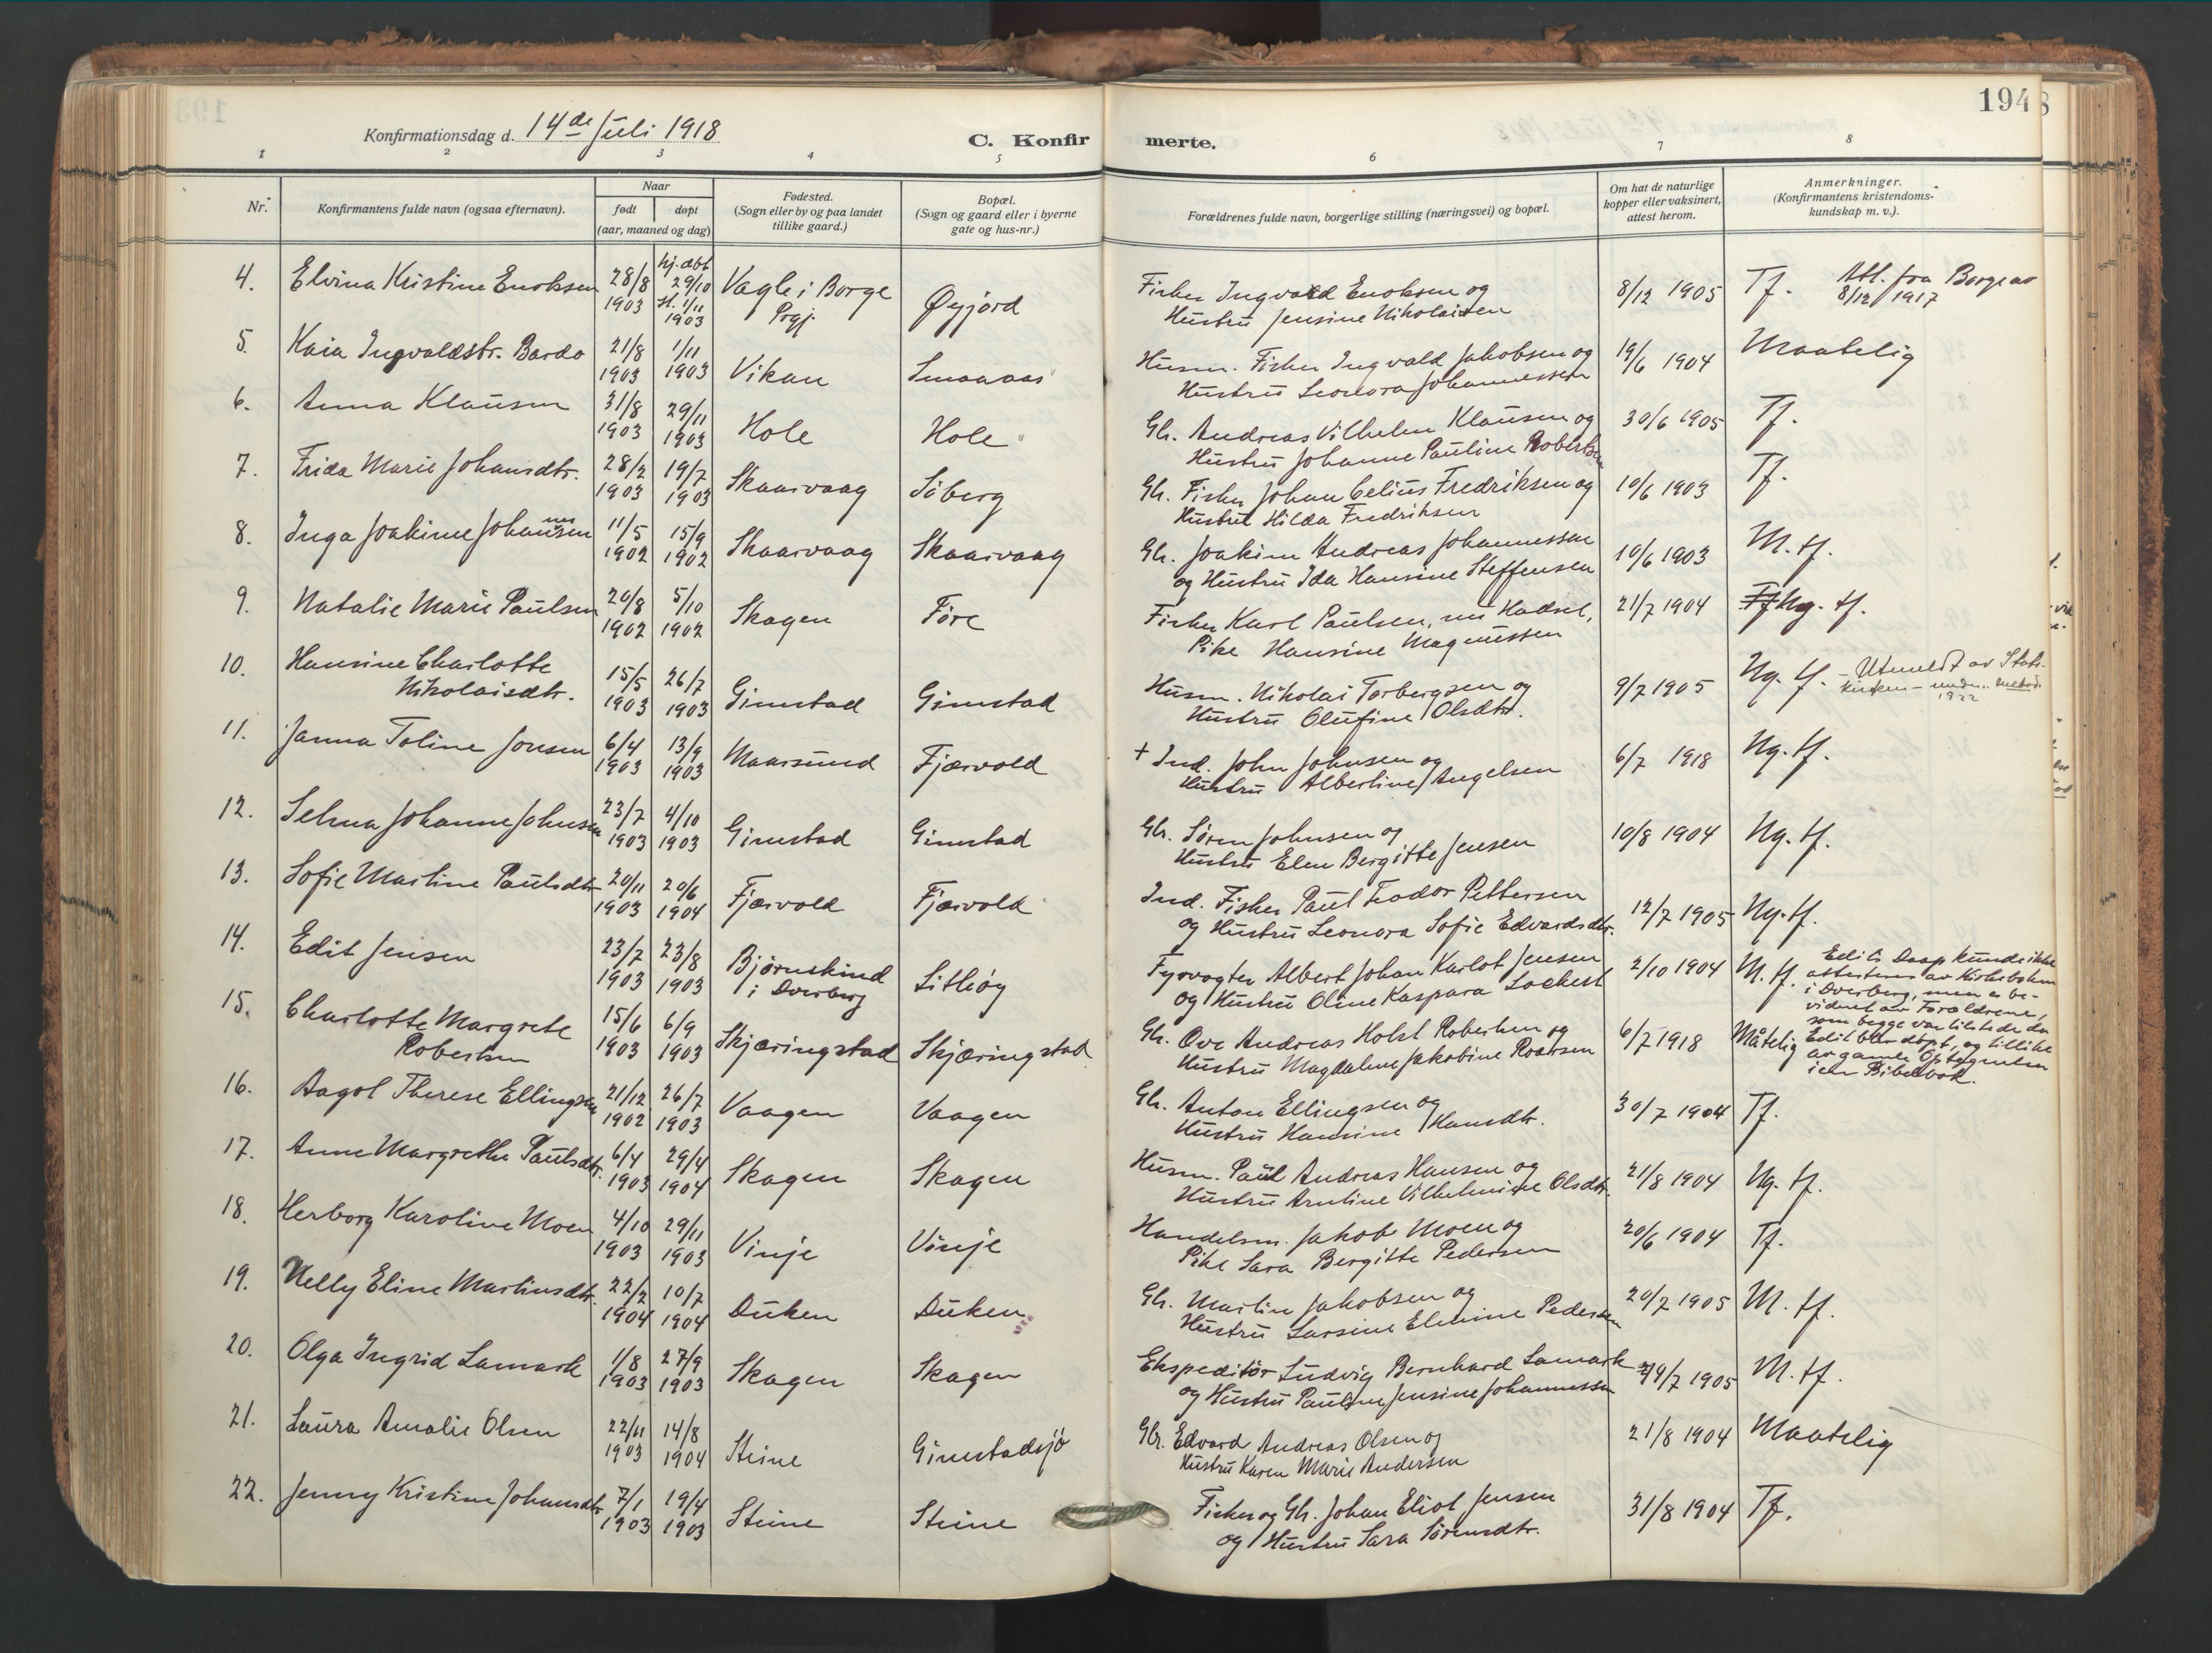 194
Konfirmationsdag d. 14de Juli 1918
C. Konfirmerte.
1 2 3 4 5 6 7 8
Nr.
Konfirmantens fulde navn (ogsaa efternavn).
Naar
født døpt
(aar, maaned og dag)
Fødested.
(Sogn eller by og paa landet
tillike gaard.)
Bopæl.
(Sogn og gaard eller i byerne
gate og hus-nr.)
Forældrenes fulde navn, borgerlige stilling (næringsvei) og bopæl.
Om hat de naturlige
kopper eller vaksinert,
attest herom.
Anmerkninger.
(Konfirmantens kristendoms-
kundskap m. v.).
4. Elvina Kristine Enoksen 28/8 1903 hj. døbt 29/10 st. 1/11 1903 Vagle i Borge Prgj. Øyjord
Fisker Ingvald Enoksen og
Hustru Jensine Nikolaisen
8/12 1905 Tf. Att. fra Borge av
8/12 1917
5. Kaia Ingvaldstr. Bardo 21/8 1903 1/11 1903 Vikan Smaaaas
Husm. Fisker Ingvald Jakobsen og
Hustru Leonora Johannessen
19/6 1904 Maatelig
6. Anna Klausen 31/8 1903 29/11 1903 Hole Hole
Gbr. Andreas Vilhelm Klausen og
Hustru Johanne Pauline Robertsen
30/6 1905 Tf.
7. Frida Marie Johansdtr. 28/2 1903 19/7 1903 Skaarvaag Søberg
Gbr. Fisker Johan Celius Fredriksen og
Hustru Hilda Fredriksen
10/6 1903 Tf.
8. Inga Joakime Johannessen 11/5 1902 15/9 1902 Skaarvaag Skaarvaag
Gbr. Joakim Andreas Johannessen
og Hustru Ida Hansine Steffensen
10/6 1903 M. tf.
9. Natalie Marie Paulsen 20/8 1902 5/10 1902 Skagen Føre
Fisker Karl Paulsen, nu Hadsel,
Pike Hansine Magnussen
21/7 1904 Tf Ng. tf.
10. Hansine Charlotte
Nikolaisdtr. 15/5 1903 26/7 1903 Gimstad Gimstad
Husm. Nikolai Torbergsen og
Hustru Olufine Olsdtr.
9/7 1905 Ng. tf. - Utmeldt av Stats-
kirken - 1922
11. Janna Toline Jonsen 6/4 1903 13/9 1903 Maarsund Fjærvold
+ Ind. John Johnsen og
Hustru Albertine Angelsen
6/7 1918 Ng. tf.
12. Selma Johanne Johnsen 23/7 1903 4/10 1903 Gimstad Gimstad
Gbr. Søren Johnsen og
Hustru Elen Bergitte Jensen
10/8 1904 Ng. tf.
13. Sofie Martine Paulsdtr 20/11 1903 20/6 1904 Fjærvold Fjærvold
Ind. Fisker Paul Teodor Pettersen
og Hustru Leonora Sofie Edvardsdtr.
12/7 1905 Ng. tf.
14. Edit Jensen 23/7 1903 23/8 1903 Bjørnskind
i Dverberg Litløy
Fyrvogter Albert Johan Karlot Jensen
og Hustru Oline Kaspara Lockert
2/10 1904 M. tf.
Edits Daap kunde ikke
attesteres av Kirkeboken
i Dverberg, men er be-
vidnet av Forældrene,
som begge var tilstede da
Edit blev døpt, og tillike
av gamle Optegnelser
i en Bibelbok.
15. Charlotte Margrete
Robertsen 15/6 1903 6/9 1903 Skjæringstad Skjæringstad
Gbr. Ove Andreas Holst Robertsen og
Hustru Magdalene Jakobine Roarsen
6/7 1918 Måtelig
16. Aagot Therese Ellingsen 21/12 1902 26/7 1903 Vaagen Vaagen
Gbr. Anton Ellingsen og
Hustru Hansine Hansdtr.
30/7 1904 Tf.
17. Anne Margrethe Paulsdtr. 6/4 1903 29/4 1904 Skagen Skagen
Husm. Paul Andreas Hansen og
Hustru Arntine Vilhelmine Olsdtr.
21/8 1904 Ng. tf.
18. Herborg Karoline Moen 4/10 1903 29/11 1903 Vinje Vinje
Handelsm. Jakob Moen og
Pike Sara Bergitte Pedersen
20/6 1904 Tf.
19. Nelly Eline Martinsdtr. 22/2 1904 10/7 1904 Duken Duken
Gbr. Martin Jakobsen og
Hustru Larsine Elenine Pedersen
20/7 1905 M. tf.
20. Olga Ingrid Lamark 1/8 1903 27/9 1903 Skagen Skagen
Ekspeditør Ludvig Bernhard Lamark
og Hustru Pauline Jensine Johannessen
29/7 1905 M. tf.
21. Laura Amalie Olsen 22/11 1903 14/8 1904 Steine Gimstadsjø
Gbr. Edvard Andreas Olsen og
Hustru Karen Marie Andersen
21/8 1904 Maatelig
22. Jenny Kristine Johansdtr 7/1 1903 19/4 1903 Steine Steine
Fisker og Gbr. Johan Eliot Jensen
og Hustru Sara Sørensdtr.
31/8 1904 Tf.